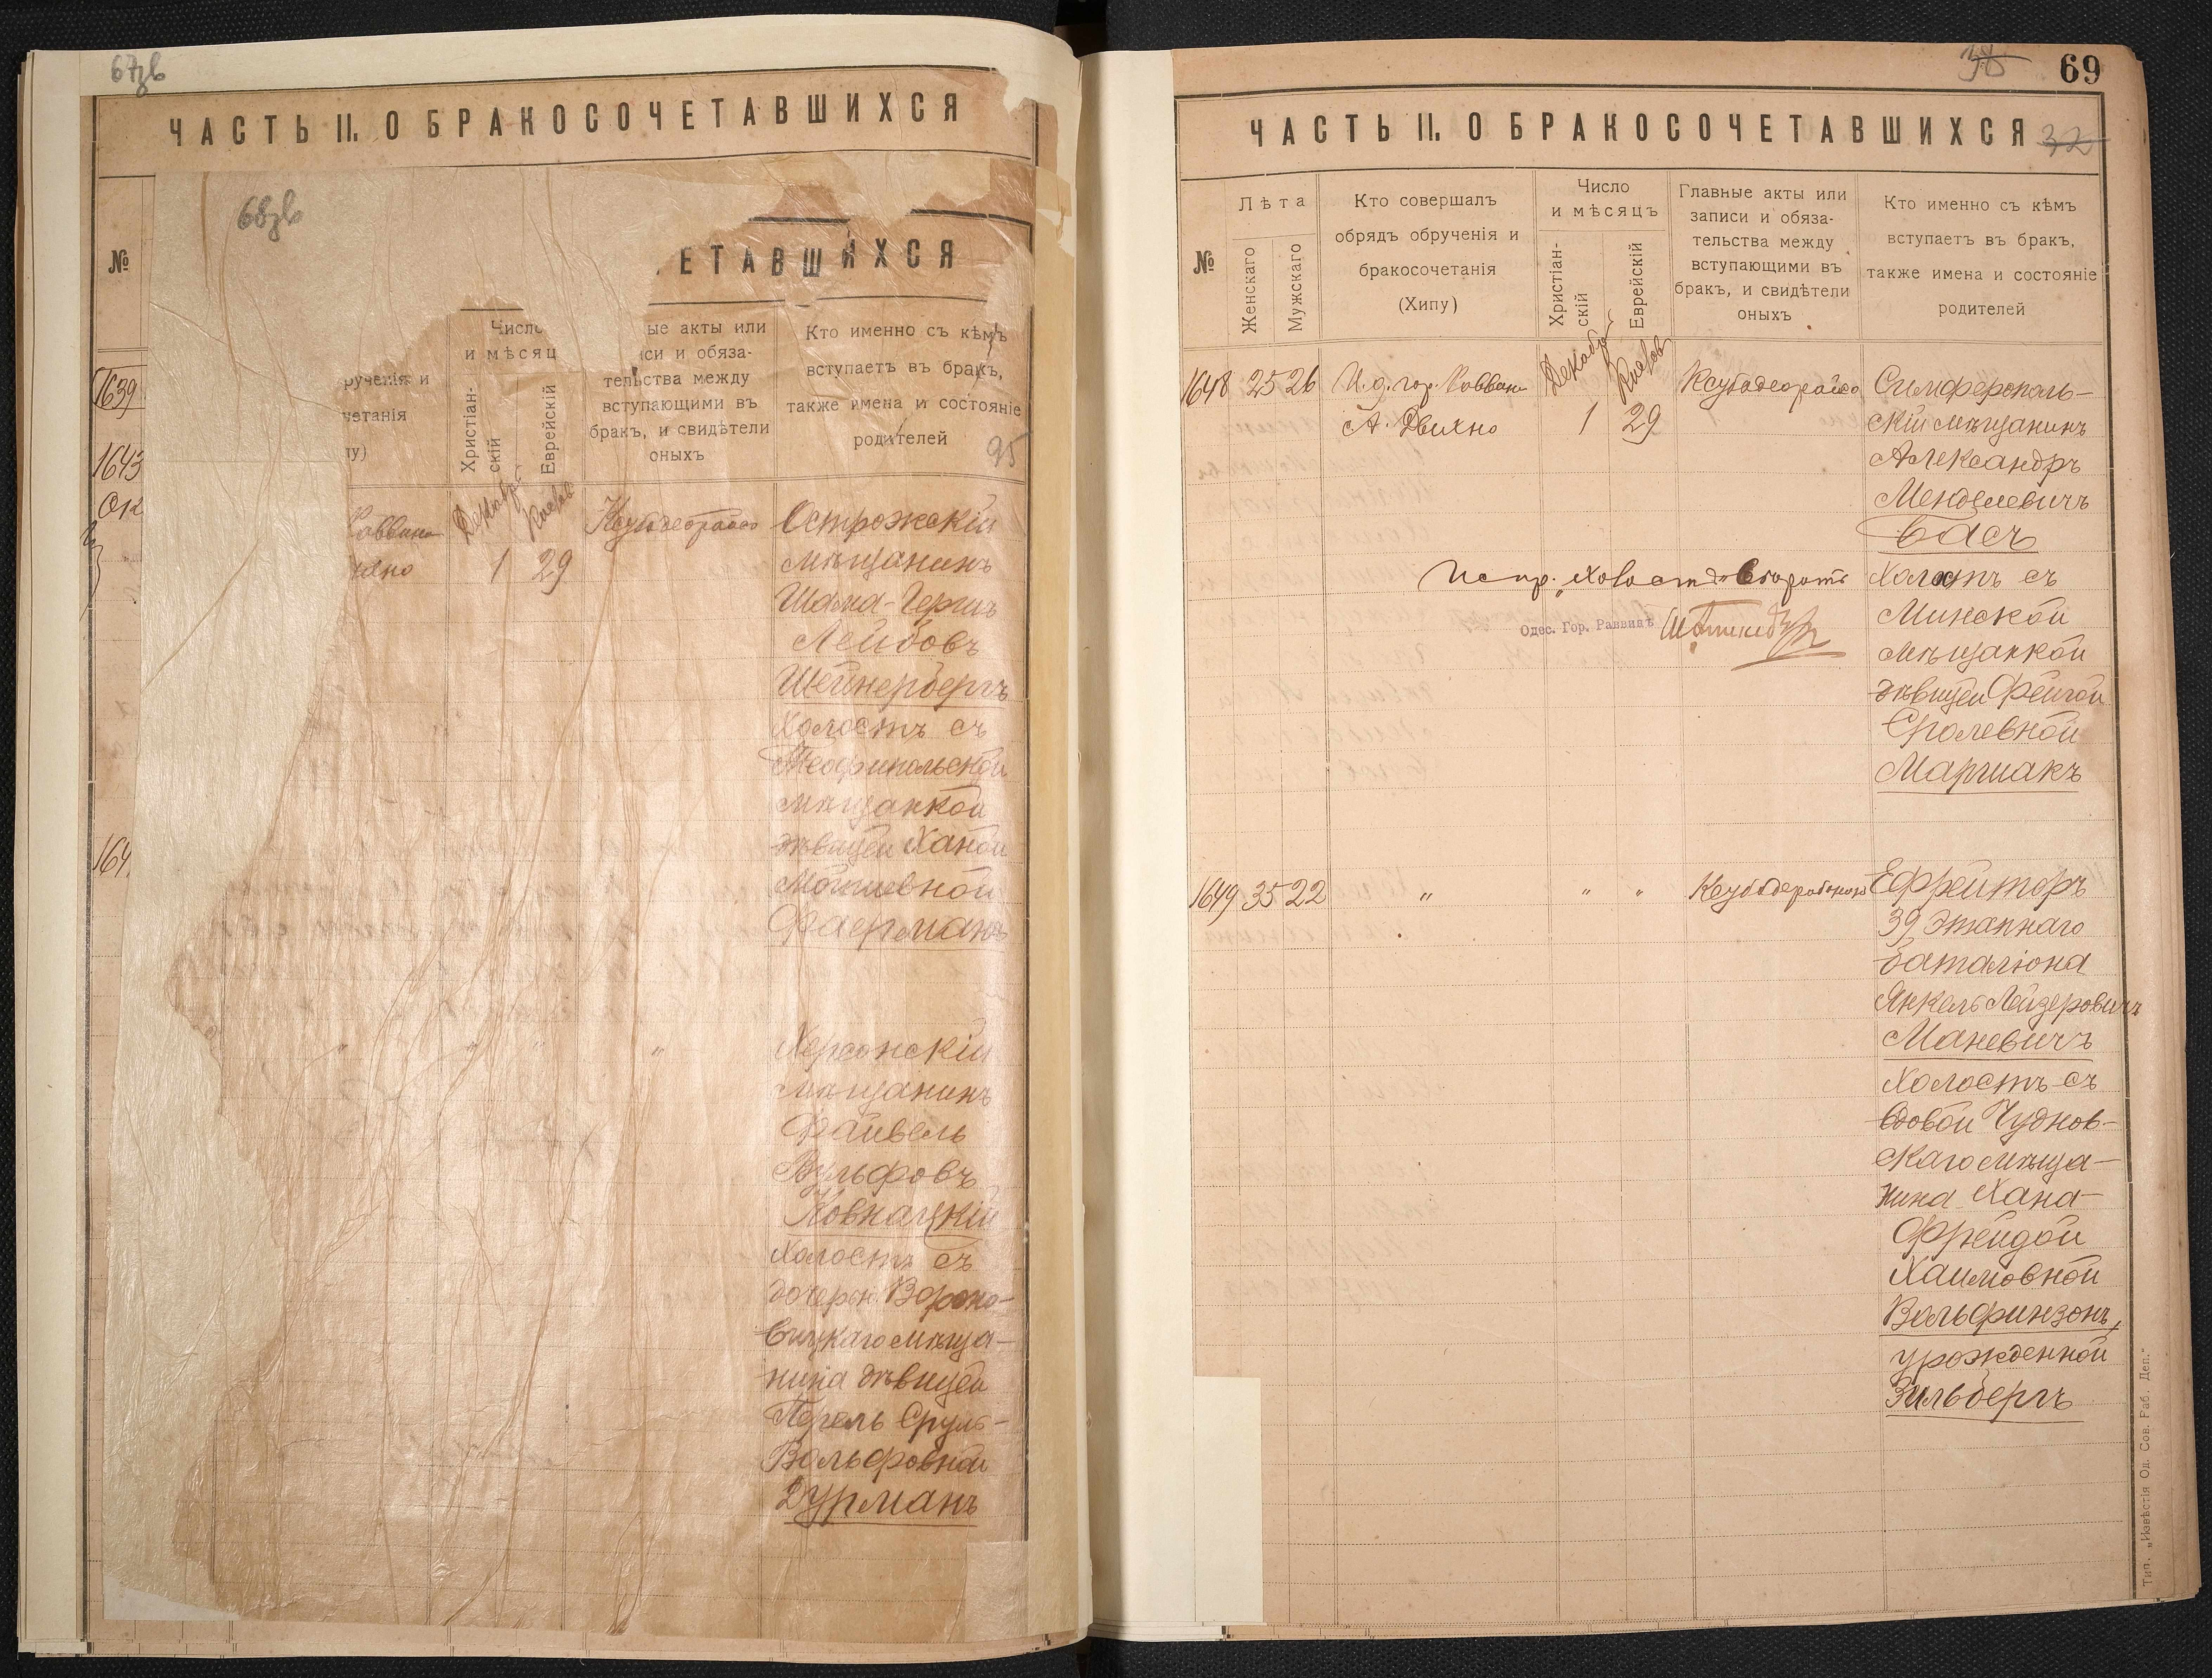 67зв
ЧАСТЬ II. О БРАКОСОЧЕТАВШИХСЯ
68зв
№
ЕТАВШИХСЯ
Число
и мѣсяц
Христіан-
скій
Еврейскій
ые акты или
си и обяза-
тельства между
вступающими въ
бракъ, и свидѣтели
оныхъ
Кто именно съ кѣмъ
вступаетъ въ бракъ,
также имена и состояніе
родителей
95
рученія и
четанія
у)
1639
1643
164
Раввина
Декабрь
Кислев
1 29
Острожскій
мѣщанинъ
Шама-Герш
Лейбовъ
Шейнербергъ
Холостъ съ
Теофипольской
мѣщанкой
дѣвицей Ханой
Мошиевной
Фаерманъ
" " " "
Херсонскій
мѣщанинъ
Файвель
Вульфовъ
Ковнацкій
Холостъ съ
дочерью Вороно-
вицкаго мѣща-
нина дѣвицей
Перель Сруль-
Вольфовной
Дурманъ
38
69
ЧАСТЬ II. О БРАКОСОЧЕТАВШИХСЯ
32
№
Лѣта
Женскаго
Мужскаго
Кто совершалъ
обрядъ обрученія и
бракосочетанія
(Хипу)
Число
и мѣсяцъ
Христіан-
скій
Еврейскій
Главные акты или
записи и обяза-
тельства между
вступающими въ
бракъ, и свидѣтели
оныхъ
Кто именно съ кѣмъ
вступаетъ въ бракъ,
также имена и состояніе
родителей
1648 25 26 И.д. гор. Раввина
А. Двихно
Декабрь
Кислев
1 29
Симферополь-
скій мѣщанинъ
Александръ
Менделевичъ
Басъ
Холостъ съ
Минской
мѣщанкой
дѣвицей Фейгой
Сролевной
Маршакъ
Испр. "Холостъ" вѣрить
Одес. Гор. Раввинъ
1649 35 22 " " "
Ефрейторъ
39 Этапнаго
баталіона
Янкель Лейзеровичъ
Маневичъ
Холостъ съ
вдовой Чуднов-
скаго мѣща-
нина Хана-
Фрейдой
Хаимовной
Вольфинзонъ,
урожденной
Зильбергъ
Тип. „Извѣстія Од. Сов. Раб. Деп."